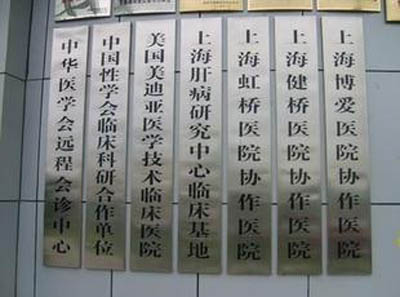 中华医学会远程会诊中心
中国性学会临床科研合作单位
美国美迪亚医学技术临床医院
上海肝病研究中心临床基地
上海虹桥医院协作医院
上海健桥医院协作医院
上海博爱医院协作医院